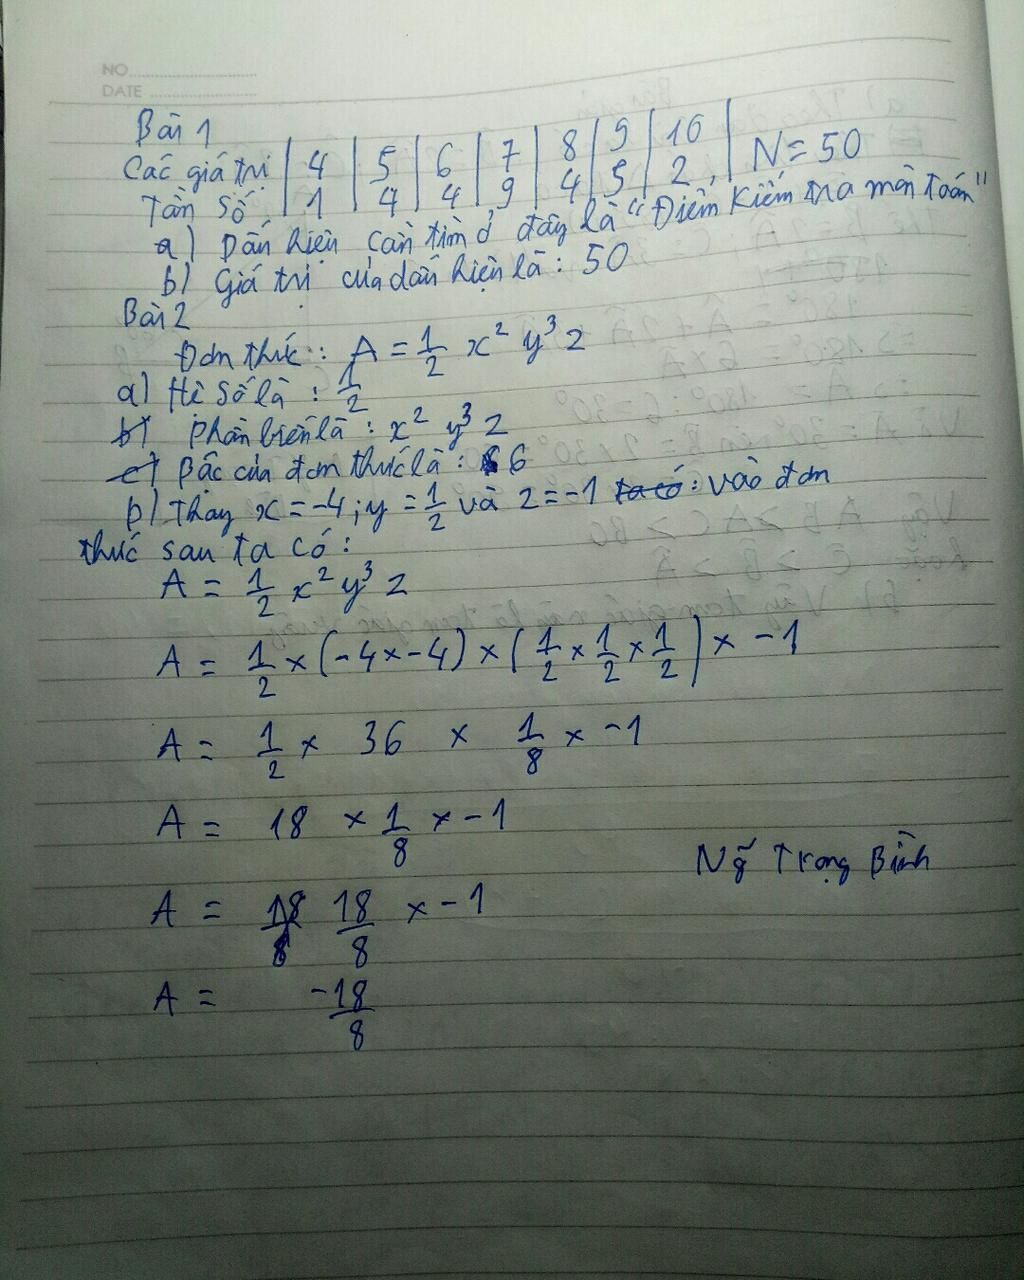 NO
DATE
Bài 1
Các giá trị | 4 | 5 | 6 | 7 | 8 | 9 | 10 | N = 50
Tần số | 1 | 4 | 4 | 9 | 4 | 5 | 2,
a) Dấu hiện cần tìm ở đây là "Điểm kiểm tra môn toán"
b) Giá trị của dấu hiện là: 50
Bài 2
Đơn thức: A = 1/2 x² y³ z
a) Hệ số là: 1/2
b) Phần biến là: x² y³ z
c) Bậc của đơn thức là: 6
b) Thay x = -4; y = 1/2 và z = -1 ta có: vào đơn
thức sau ta có:
A = 1/2 x² y³ z
A = 1/2 × (-4 × -4) × (1/2 × 1/2 × 1/2) × -1
A = 1/2 × 36 × 1/8 × -1
A = 18 × 1/8 × -1
Ng̃ Trọng Bình
A = 18/8 18/8 × -1
A = -18/8